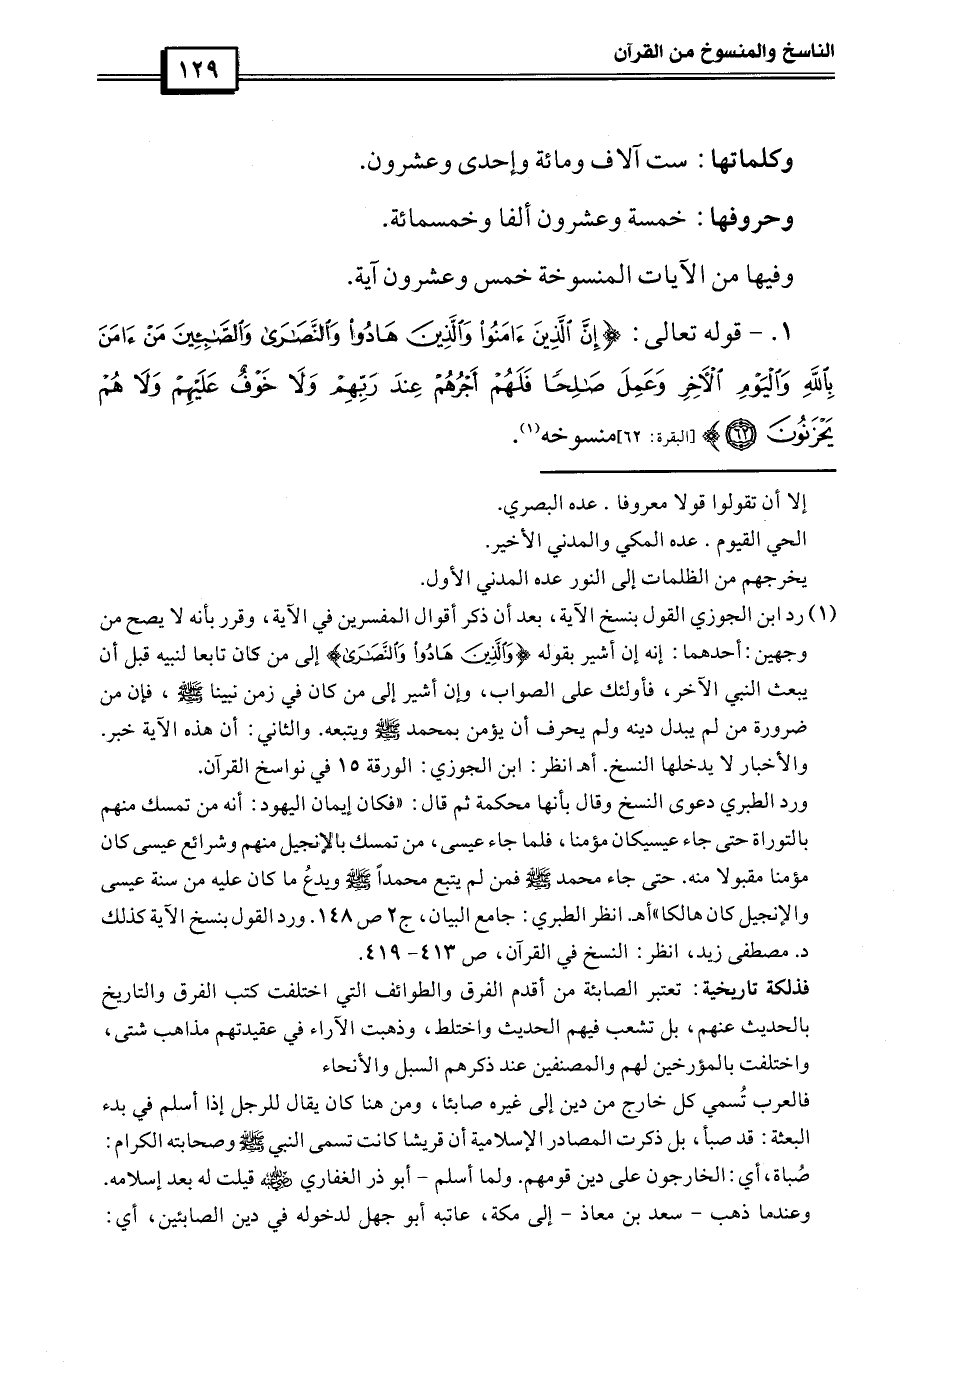 الناسخ والمنسوخ من القرآن
١٢٩
وكلماتها : ست آلاف ومائة وإحدى وعشرون.
وحروفها : خمسة وعشرون ألفا وخمسمائة.
وفيها من الآيات المنسوخة خمس وعشرون آية.
١. - قوله تعالى : ﴿إِنَّ ٱلَّذِينَ ءَامَنُوا۟ وَٱلَّذِينَ هَادُوا۟ وَٱلنَّصَٰرَىٰ وَٱلصَّٰبِـِٔينَ مَنْ ءَامَنَ
بِٱللَّهِ وَٱلْيَوْمِ ٱلْءَاخِرِ وَعَمِلَ صَٰلِحًا فَلَهُمْ أَجْرُهُمْ عِندَ رَبِّهِمْ وَلَا خَوْفٌ عَلَيْهِمْ وَلَا هُمْ
يَحْزَنُونَ ﴿٦٢﴾﴾ [البقرة: ٦٢]منسوخه(١).
إلا أن تقولوا قولا معروفا . عده البصري.
الحي القيوم . عده المكي والمدني الأخير.
يخرجهم من الظلمات إلى النور عده المدني الأول.
(١) رد ابن الجوزي القول بنسخ الآية، بعد أن ذكر أقوال المفسرين في الآية، وقرر بأنه لا يصح من
وجهين: أحدهما: إنه إن أشير بقوله ﴿وَٱلَّذِينَ هَادُوا۟ وَٱلنَّصَٰرَىٰ﴾ إلى من كان تابعا لنبيه قبل أن
يبعث النبي الآخر، فأولئك على الصواب، وإن أشير إلى من كان في زمن نبينا ﷺ ، فإن من
ضرورة من لم يبدل دينه ولم يحرف أن يؤمن بمحمد ﷺ ويتبعه. والثاني: أن هذه الآية خبر.
والأخبار لا يدخلها النسخ. أهـ انظر : ابن الجوزي: الورقة ١٥ في نواسخ القرآن.
ورد الطبري دعوى النسخ وقال بأنها محكمة ثم قال: «فكان إيمان اليهود: أنه من تمسك منهم
بالتوراة حتى جاء عيسىكان مؤمنا، فلما جاء عيسى، من تمسك بالإنجيل منهم وشرائع عيسى كان
مؤمنا مقبولا منه. حتى جاء محمد ﷺ فمن لم يتبع محمداً ﷺ ويدعُ ما كان عليه من سنة عيسى
والإنجيل كان هالكا»أهـ. انظر الطبري: جامع البيان، ج٢ ص ١٤٨. ورد القول بنسخ الآية كذلك
د. مصطفى زيد، انظر : النسخ في القرآن، ص ٤١٣- ٤١٩.
فذلكة تاريخية: تعتبر الصابئة من أقدم الفرق والطوائف التي اختلفت كتب الفرق والتاريخ
بالحديث عنهم، بل تشعب فيهم الحديث واختلط، وذهبت الآراء في عقيدتهم مذاهب شتى،
واختلفت بالمؤرخين لهم والمصنفين عند ذكرهم السبل والأنحاء
فالعرب تُسمي كل خارج من دين إلى غيره صابئا، ومن هنا كان يقال للرجل إذا أسلم في بدء
البعثة: قد صبأ، بل ذكرت المصادر الإسلامية أن قريشا كانت تسمى النبي ﷺ وصحابته الكرام:
صُباة، أي: الخارجون على دين قومهم. ولما أسلم - أبو ذر الغفاري رضي الله عنه قيلت له بعد إسلامه.
وعندما ذهب - سعد بن معاذ - إلى مكة، عاتبه أبو جهل لدخوله في دين الصابئين، أي: